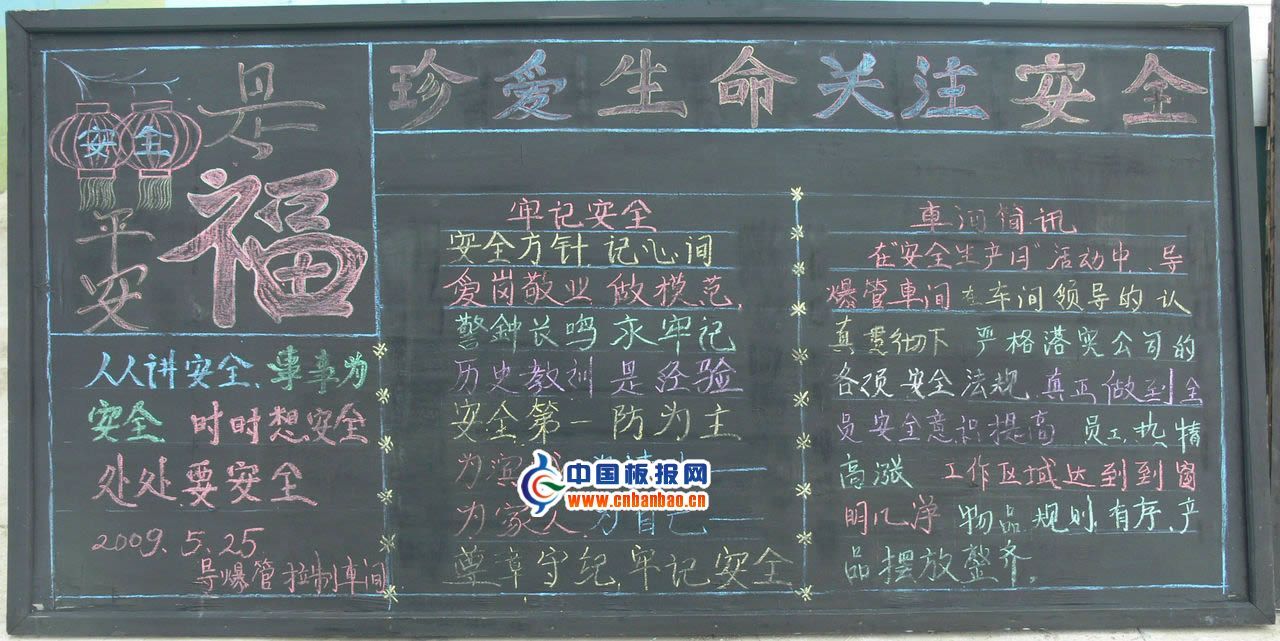 珍爱生命关注安全
安全
平安是福
人人讲安全、事事为
安全 时时想安全
处处要安全
2009.5.25
导爆管拉制车间
牢记安全
安全方针 记心间
爱岗敬业 做模范,
警鈡长鸣 永牢记
历史教训 是经验
安全第一 防为主
为
为家人 为自己一
尊章守纪,牢记安全
車间简讯
在“安全生产月”活动中、导
爆管車间 在车间领导的认
真贯彻下 严格落实公司的
各项安全法规 真正做到全
员安全意识提高 员工热情
高涨 工作区域达到到窗
明几净 物品规则,有序,产
品摆放整齐.
中国板报网
www.cnbanbao.cn